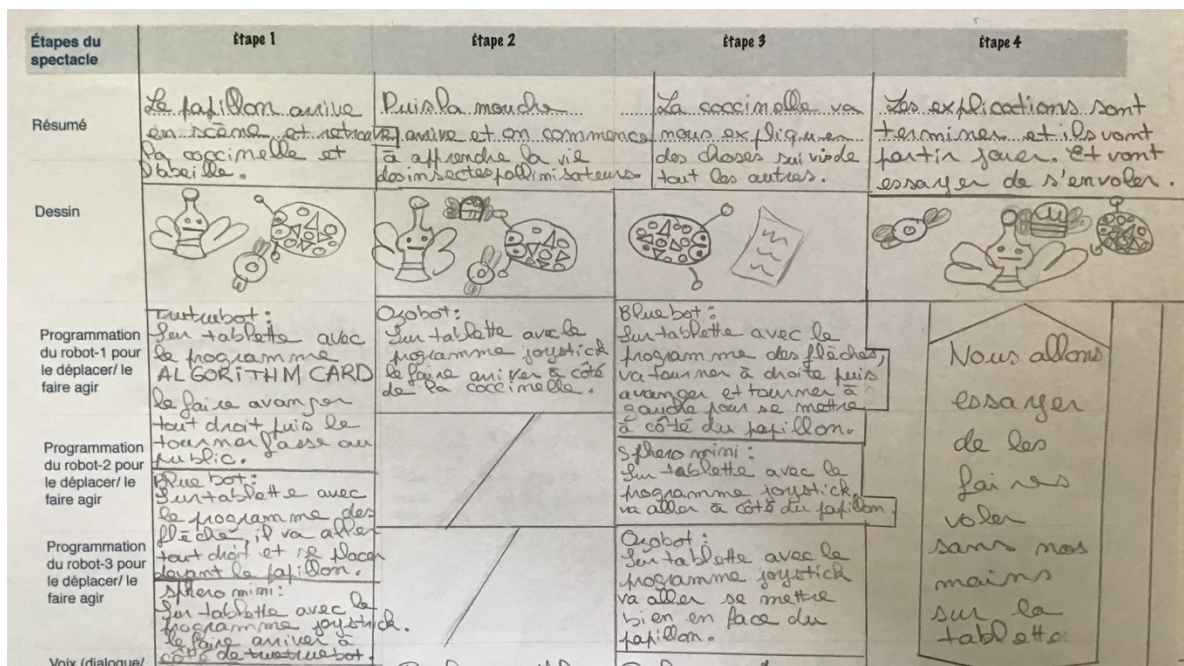 Étapes du
spectacle
Étape 1
Étape 2
Étape 3
Étape 4
Résumé
Le papillon arrive
en scène et retrouve
la coccinelle et
l'abeille.
Puis la mouche
arrive et on commence
à apprendre la vie
des insectes pollinisateurs.
La coccinelle va
nous expliquer
des choses suivi de
tout les autres.
Les explications sont
termines et ils vont
partir jouer. Et vont
essayer de s'envoler.
Dessin
Programmation
du robot-1 pour
le déplacer/ le
faire agir
Truetruebot:
Sur tablette avec
le programme
ALGORITHM CARD
le faire avancer
tout droit puis le
tourner fasse au
public.
Ozobot:
Sur tablette avec le
programme joystick
le faire arriver à côté
de la coccinelle.
Bluebot:
Sur tablette avec le
programme des flèches,
va tourner à droite puis
avancer et tourner à
gauche pour se mettre
à côté du papillon.
Nous allons
essayer
de les
faires
voler
sans nos
mains
sur la
tablette.
Programmation
du robot-2 pour
le déplacer/ le
faire agir
Bluebot:
Sur tablette avec
le programme des
flèche, il va aller
tout droit et se placer
devant le papillon.
Sphero mini:
Sur tablette avec le
programme joystick,
va aller à côté du papillon.
Programmation
du robot-3 pour
le déplacer/ le
faire agir
Sphero mini:
Sur tablette avec le
programme joystick.
le faire arriver à
côté de truetruebot.
Ozobot:
Sur tablette avec le
programme joystick
va aller se mettre
bien en face du
papillon.
Voix (dialogue/